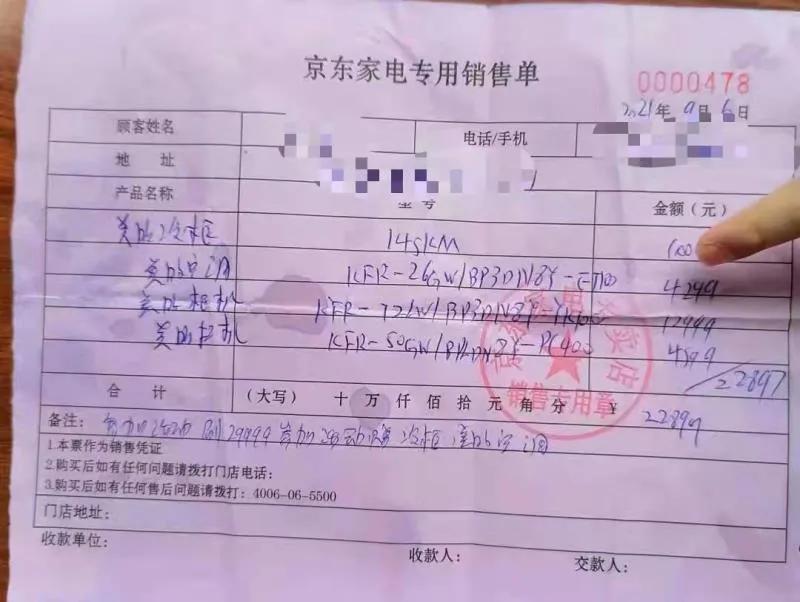 京东家电专用销售单
0000478
2021年9月6日
顾客姓名 电话/手机
地 址
产品名称 型号 金额(元)
美的冷柜 145KM 100
美的空调 KFR-26GW/BP3DN8Y- 4299
美的柜机 KFR-72LW/BP3DN8Y- 12999
美的挂机 KFR-50GW/BP3DN8Y-PC400 4599
/22897
合 计 (大写) 十 万 仟 佰 拾 元 角 分 ¥ 22897
备注: 参加活动 刷29999参加活动 冷柜 美的空调
1.本票作为销售凭证
2.购买后如有任何问题请拨打门店电话:
3.购买后如有任何售后问题请拨打: 4006-06-5500
门店地址:
收款单位: 收款人: 交款人:
专卖店
销售专用章